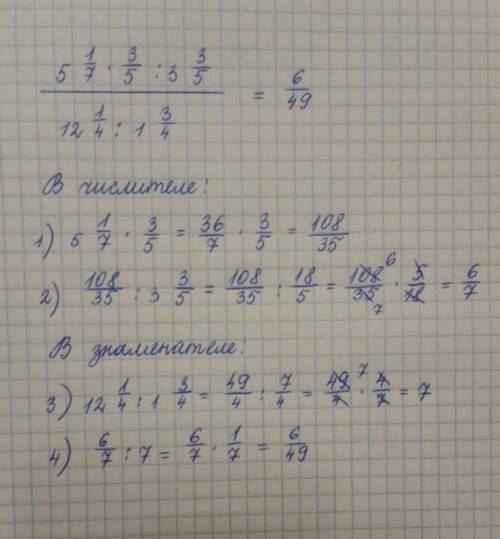 5 1/7 · 3/5 : 3 3/5
12 1/4 : 1 3/4
= 6/49
В числителе:
1) 5 1/7 · 3/5 = 36/7 · 3/5 = 108/35
2) 108/35 : 3 3/5 = 108/35 : 18/5 = 108/35 6 7 · 5/18 = 6/7
В знаменателе:
3) 12 1/4 : 1 3/4 = 49/4 : 7/4 = 49/4 7 · 4/7 = 7
4) 6/7 : 7 = 6/7 · 1/7 = 6/49